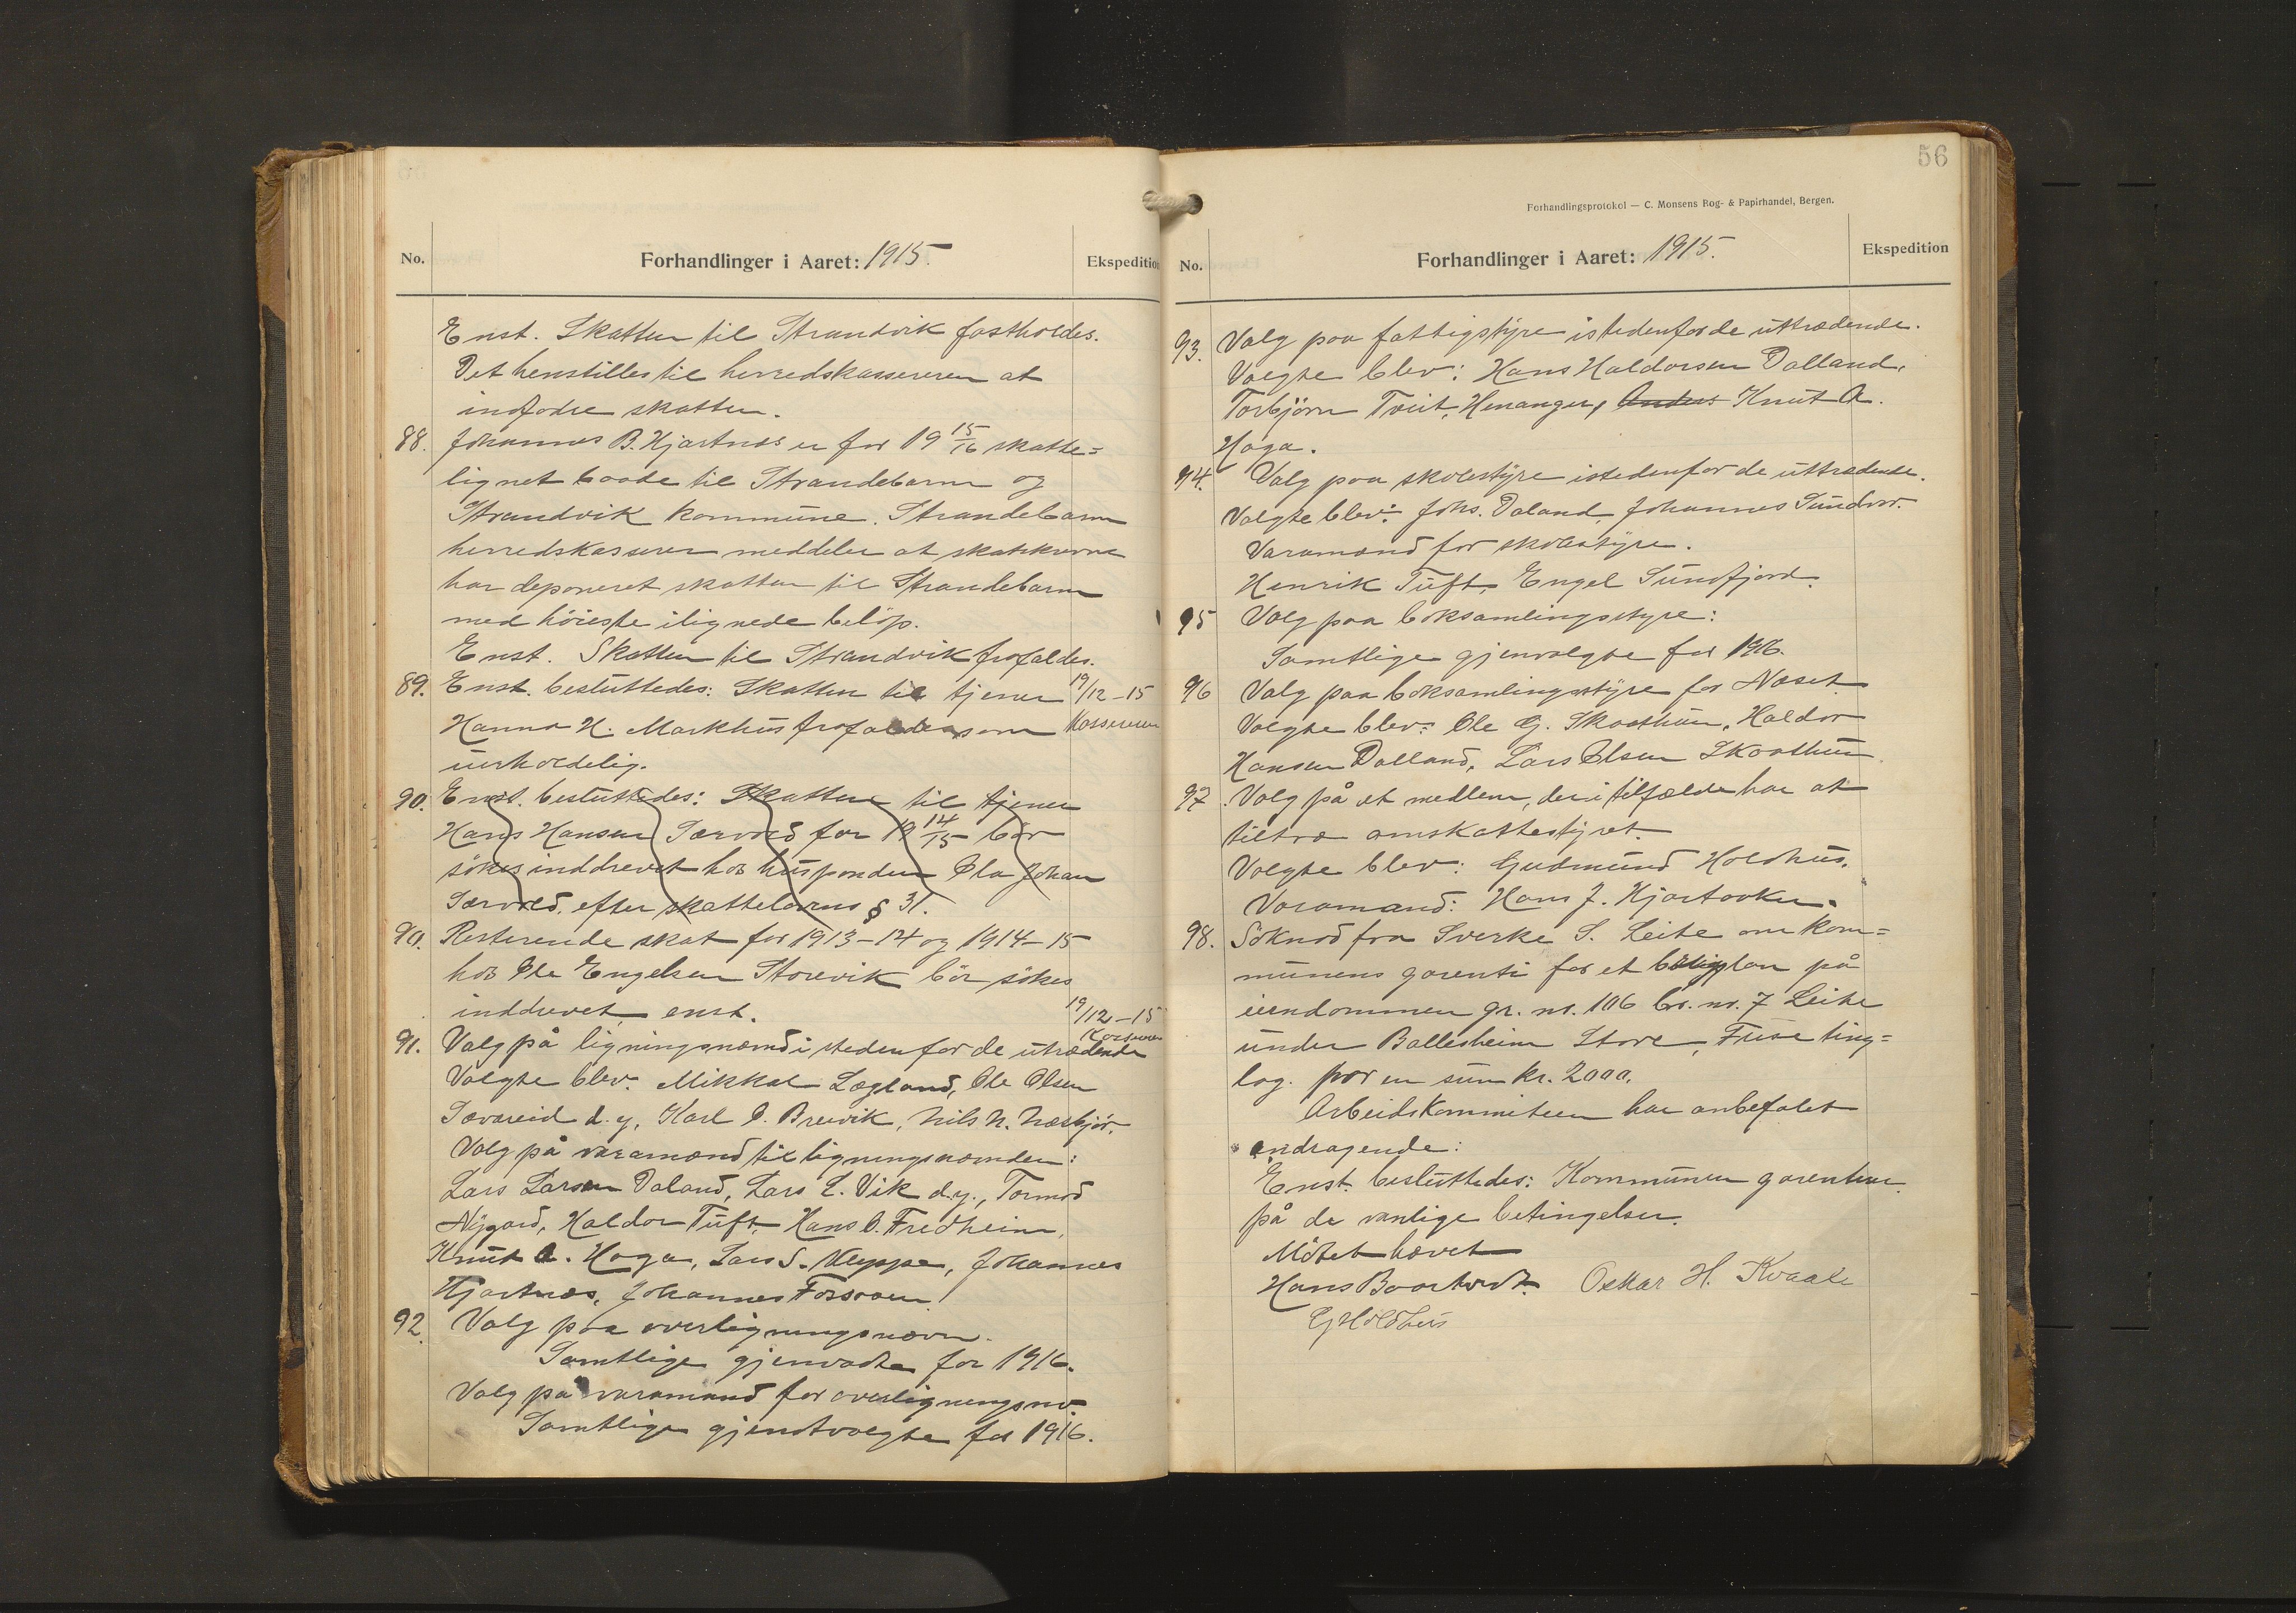 No.
Forhandlinger i Aaret: 1915.
Ekspedition
Enst. Skatten til Strandvik fastholdes.
Det henstilles til herredskassereren at
indfodre skatten.
88. Johannes B. Hjartnes er for 19 15/16 skatte=
lignet baade til Strandebarm og
Strandvik kommune. Strandebarm
herredskasserer meddeler at skatskuvne
har deponeret skatten til Strandebarm
med höieste ilignede belöp.
Enst. Skatten til Strandvik frafaldes.
89. Enst. besluttedes: Skatten til tjener 19/12-15
Hanna H. Markhus frafaldes som Kassereren
uerholdelig.
90. Enst. besluttedes: Skatten til tjener
Hans Hansen Særvold for 19 14/15 bör
sökes inddrevet hos husbonden Ola Johan
Særvold, efter skattelovens § 31.
90. Resterende skat for 1913-14 og 1914-15
hos Ole Engelsen Storevik bör sökes
inddrevet, enst. 19/12-15
Kassereren
91. Valg på ligningsnæmd i steden for de utrædende
Valgte blev: Mikkal Lægland, Ole Olsen
Sævareid d.y, Karl O. Brevik, Nils N. Næsbjör.
Valg på varamænd til ligningsnæmnden:
Lars Larsen Daland, Lars L. Vik d.y., Tormod
Nygård, Haldor Tuft, Hans O. Fredheim,
Knut A. Haga, Lars S. Kleppe, Johannes
Hjartnæs, Johannes Fossaaen.
92. Valg paa overligningsnævn.
Samtlige gjenvalte for 1916.
Valg på varamænd for overligningsnv.
Samtlige gjenvalgte for 1916.
56
Forhandlingsprotokol — C. Monsens Bog- & Papirhandel, Bergen.
No.
Forhandlinger i Aaret: 1915.
Ekspedition
93. Valg paa fattigstyre istedenfor de uttrædende.
Valgte blev: Hans Haldorsen Dalland,
Torbjörn Tveit, Henanger, Anders Knut A.
Haga.
94. Valg paa skolestyre istedenfor de uttrædende.
Valgte blev: Johs. Daland, Johannes Sundvor.
Varamænd for skolestyre.
Henrik Tuft, Engel Sundfjord.
95 Valg paa boksamlingsstyre:
Samtlige gjenvalgte for 1916.
96 Valg paa boksamlingsstyre for Næset
Valgte blev: Ole G. Skaathun, Haldor
Hansen Dalland, Lars Olsen Skaathun
97. Valg på et medlem, der i tilfælde har at
tiltræ amskattestyret.
Valgte blev: Gudmund Holdhus.
Varamand: Hans J. Hjartaaker.
98. Söknad fra Sverke S. Leite om kom=
munens garenti for et boliglån på
iendommen gr. nr. 106 br. nr. 7 Leite
under Ballesheim Store, Fuse ting=
lag. for en sum kr. 2000.
Arbeidskommiteen har anbefalet
andragende:
Enst. besluttedes: Kommunen garenterer
på de vanlige betingelser.
Mötet hævet
Hans Baartvedt. Oskar H. Kvaale
G Holdhus